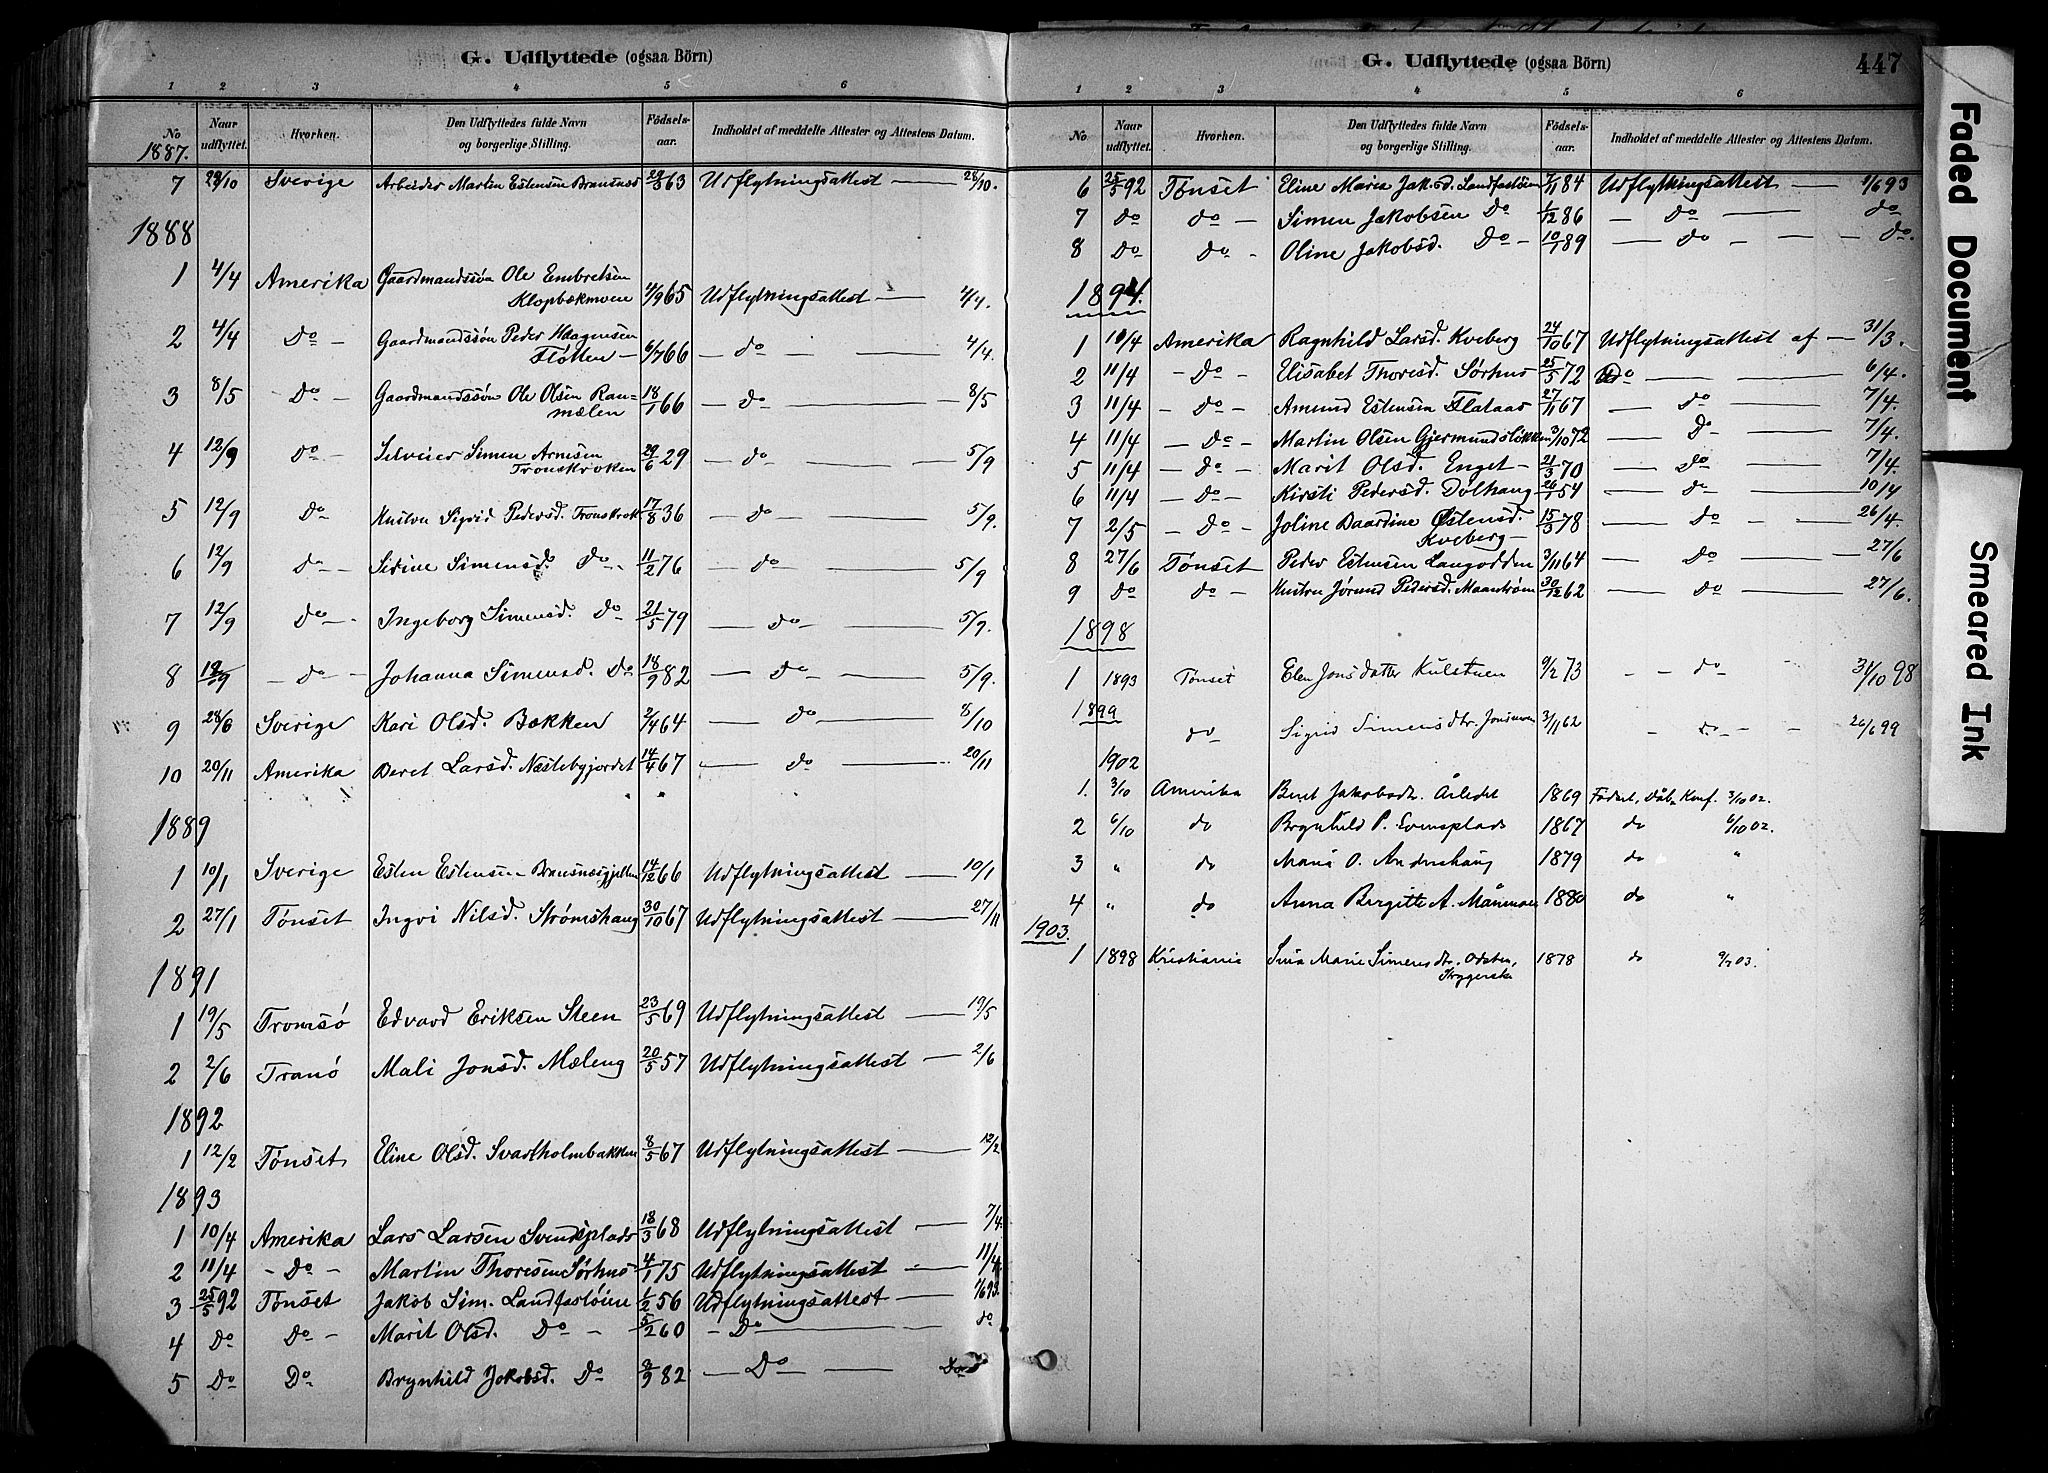 G. Udflyttede (ogsaa Börn)
1 2 3 4 5 6
No Naar udflyttet. Hvorhen. Den Udflyttedes fulde Navn og borgerlige Stilling. Fødsels-aar. Indholdet af meddelte Attester og Attestens Datum.
1887.
7 28/10 Sverige Arbeider Martin Estensen Bransnes 63 Udflytningsattest — 28/10.
1888
1 4/4 Amerika Gaardmandssøn Ole Embretsen
Klopbækmoen 4/9 65 Udflytningsattest — 4/4.
2 4/4 Do — Gaardmandssøn Peder Magnusen
Fløtten — 6/7 66 — do — 4/4.
3 8/5 Do — Gaardmandssøn Ole Olsen Rau-
mælen 18/1 66 — do — 8/5
4 12/9 Do Selveier Simen Arnesen
Tronskroken 29/6 29 — do — 5/9
5 12/9 Do Hustru Sigrid Pedersd. Tronskrok 17/8 36 — do — 5/9.
6 12/9 Do — Sirine Simensd. Do 11/2 76 — do — 5/9
7 12/9 Do — Ingeborg Simensd. Do — 21/5 79 — do — 5/9.
8 12/9 — Do — Johanna Simensd. Do 18/9 82 — do — 5/9.
9 28/8 Sverige Kari Olsd. Bækken 2/4 64 — do — 8/10
10 20/11 Amerika Beret Larsd. Næstebyjordet 14/4 67 — do — 20/11
1889
1 10/1 Sverige Esten Estensen Bransnesgjelten 14/12 66 Udflytningsattest — 10/1
2 27/1 Tønset Ingri Nilsd. Strømshaug 30/10 67 Udflytningsattest — 27/11
1891
1 19/5 Tromsø Edvard Eriksen Steen 23/5 69 Udflytningsattest — 19/5
2 2/6 Tranø Mali Jonsd. Mæleng 20/5 57 Udflytningsattest — 2/6
1892
1 12/2 Tønset Eline Olsd. Svartholmbakken 8/5 67 Udflytningsattest — 12/2
1893
1 10/4 Amerika Lars Larsen Svendsplads 18/3 68 Udflytningsattest — 7/4.
2 11/4 — Do — Martin Thoresen Sørhus 4/1 75 Udflytningsattest — 11/4
3 25/5 92 Tønset Jakob Sim. Landfastøien 1/2 56 Udflytningsattest — 1/6 93.
4 Do Do — Marit Olsd. Do — 5/2 60 — Do — do
5 Do Do Brynhild Jakobsd. Do 8/9 82 — Do — Do
G. Udflyttede (ogsaa Börn) 447
1 2 3 4 5 6
No Naar udflyttet. Hvorhen. Den Udflyttedes fulde Navn og borgerlige Stilling. Fødsels-aar. Indholdet af meddelte Attester og Attestens Datum.
6 25/5 92 Tønset Eline Marie Jakobsd. Landfastøien 7/11 84 Udflytningsattest — 1/6 93
7 do do — Simen Jakobsen Do 1/12 86 — Do — do
8 Do Do — Oline Jakobsd. Do — 10/1 89 — do — do.
1894.
1 10/4 Amerika Ragnhild Larsd. Kveberg 24/10 67 Udflytningsattest af — 31/3.
2 11/4 — Do — Elisabet Thoresd. Sørhus 25/5 72 Do — 6/4.
3 11/4 — Do — Amund Estensen Flataas 27/11 67 — Do — 7/4.
4 11/4 — Do — Martin Olsen Gjermundsløkken 3/10 72 — Do — 7/4.
5 11/4 — Do — Marit Olsd. Enget — 21/3 70 — Do — 7/4.
6 11/4 — Do — Kirsti Pedersd. Dølhaug 26/1 54 — Do — 10/4
7 2/5 — Do — Joline Baardine Østensd.
Kveberg — 15/3 78 — Do — 26/4.
8 27/6 Tønset Peder Estensen Langodden 3/11 64 — Do — 27/6
9 Do Do — Hustru Jørund Pedersd. Maanstrøm 30/12 62 — Do — 27/6.
1898
1 1893 Tønset Elen Jonsdatter Kulstuen 9/2 73 — do — 31/10 98
1899
do Sigrid Simensdtr. Jonsmoen 3/11 62 — do — 26/6 99
1902
1. 3/10 Amerika Beret Jakobsdtr. Årledet 1869 Fødsel, Dåb, Konf. 3/10 02.
2 6/10 do Brynhild P. Svensplads 1867 do 6/10 02.
3 " do Maria O. Andershaug 1879 do "
4 " do Anna Birgitte A. Månemoen 1880 do "
1903.
1 1898 Kristiania Sina Marie Simensdtr. 1878 do 9/2 03.
Faded Document
Smeared Ink